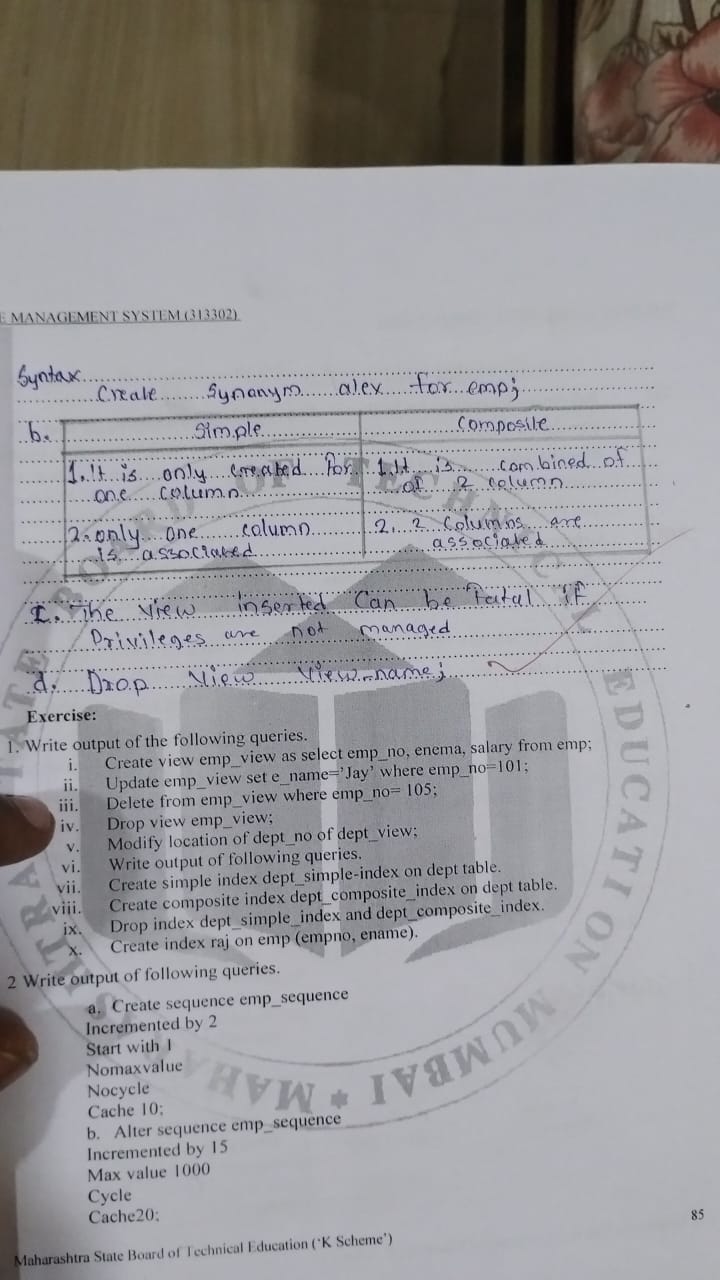 E MANAGEMENT SYSTEM (313302)
Syntax
Create Synonym alex for emp;
b. Simple Composite
1. It is only created for 1. It is combined of
one column of 2 column
2. only one column 2. 2 columns are
is associated associated
The view inserted can be fatal if
Privileges are not managed
d. Drop view view-name;
Exercise:
1. Write output of the following queries.
i. Create view emp_view as select emp_no, enema, salary from emp;
ii. Update emp_view set e_name='Jay' where emp_no=101;
iii. Delete from emp_view where emp_no= 105;
iv. Drop view emp_view;
v. Modify location of dept_no of dept_view;
vi. Write output of following queries.
vii. Create simple index dept_simple-index on dept table.
viii. Create composite index dept_composite_index on dept table.
ix. Drop index dept_simple_index and dept_composite_index.
x. Create index raj on emp (empno, ename).
2 Write output of following queries.
a. Create sequence emp_sequence
Incremented by 2
Start with 1
Nomaxvalue
Nocycle
Cache 10;
b. Alter sequence emp_sequence
Incremented by 15
Max value 1000
Cycle
Cache20;
85
Maharashtra State Board of Technical Education ('K Scheme')